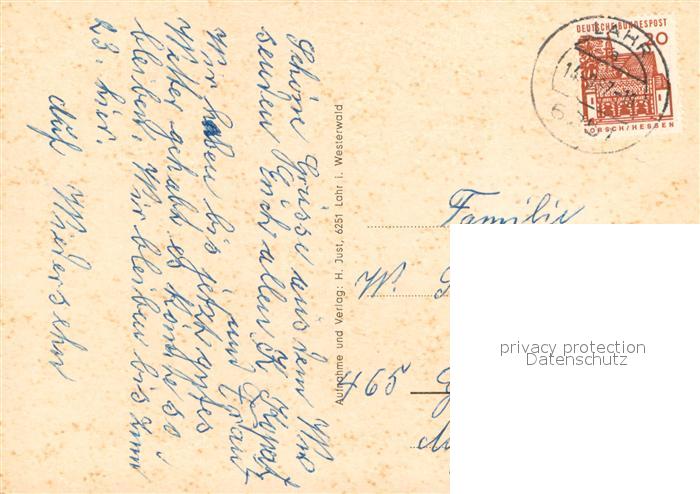 Schöne Grüsse aus dem Ur
senden Euch allen K. 
und Frau
Wir haben bis jetzt gutes
Wetter gehabt es könnte so
bleiben. Wir bleiben bis zum
23. hier.
Auf Wiedersehn
Aufnahme und Verlag: H. Just, 6251 Lahr i. Westerwald
DEUTSCHE BUNDESPOST
20
LORSCH/HESSEN
LAHR
Familie
W.
465
privacy protection
Datenschutz